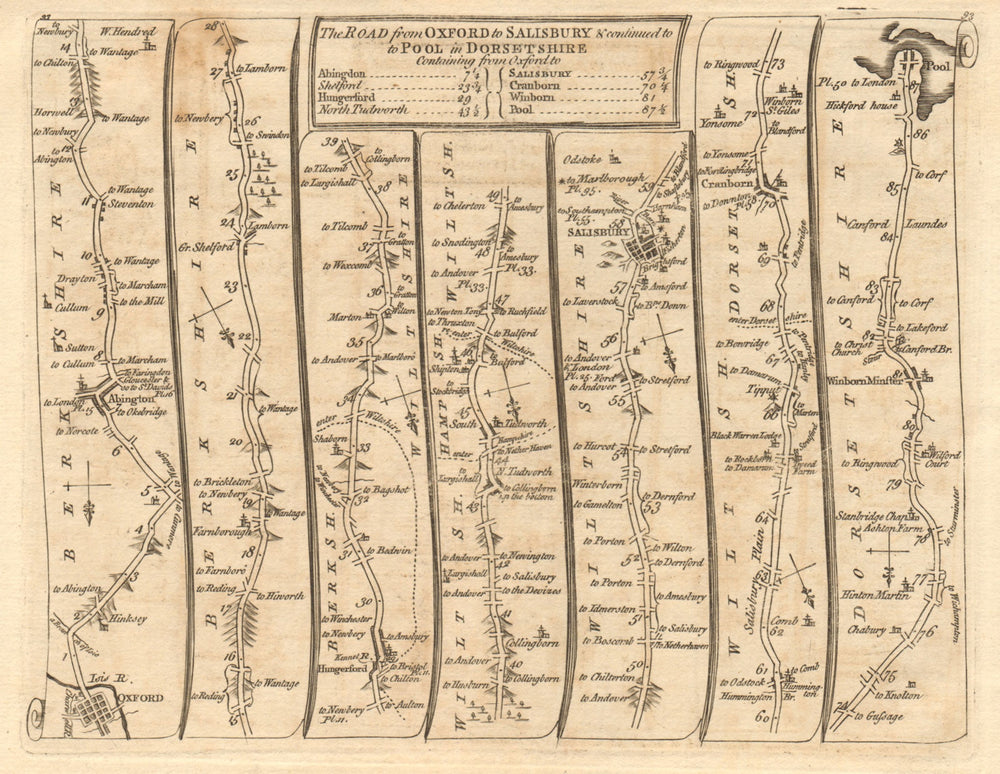 The ROAD from OXFORD to SALISBURY & continued to
to POOL in DORSETSHIRE
Containing from Oxford to
Abingdon 7 1/4
Shelford 23 3/4
Hungerford 29
North Tudworth 43 1/2
SALISBURY 57 3/4
Cranborn 70 1/4
Winborn 81
Pool 87 1/4
23
to Newbury
W. Hendred
14
to Wantage
to Chilton
13
Horwell
to Wantage
to Newbury
12
to Abington
to Wantage
11
Steventon
10
to Wantage
Drayton
to Marcham
Cullum
to the Mill
9
Sutton
8
to Marcham
to Cullum
to Faringdon
Gloucester &
so to St. Davids
Pl.16
to London
Pl.15
Abington
7
to Okebridge
to Norcote
6
to Wantage
5
to Cumner
4
3
to Abington
2
Hinksey
1
Isis R.
OXFORD
BERKSHIRE
28
27
to Lamborn
to Newbery
26
to Swindon
25
24
Lamborn
Gr. Shelford
23
22
21
to Wantage
20
to Brickleton
to Newbery
19
to Wantage
Farnborough
18
to Farnboro
to Reding
to Hiworth
17
16
to Wantage
to Reding
15
BERKSHIRE
39
to Collingborn
to Tilcomb
to Largishall
38
to Tilcomb
37
to Grafton
to Wexcomb
36
to Grafton
Marton
to Wilton
35
to Andover
to Marlboro
34
enter Wiltshire
Shaborn
33
to Bagshot
32
31
to Bedwin
30
to Winchester
to Newbery
to Amsbury
Kennet R.
Hungerford
to Bristol
Pl.11.
to Chilton
to Newbery
Pl.11.
to Aulton
BERKSH.
WILTSHIRE
49
to Chelerton
to Amesbury
to Snodington
48
to Amesbury
to Andover
Pl.33.
Pl.33.
47
to Newton Tony
to Ruchfield
to Thruxton
to Bulford
enter Wiltshire
46
to Bulford
Shipton
to Stockbridge
45
South Tudworth
Hampshire
to Nether Haven
enter
44
N. Tudworth
to Largishall
to Collingborn
in the bottom
43
to Andover
to Newington
42
Largishall
to Salisbury
to Andover
to the Devizes
41
Collingborn
to Andover
40
to Husburn
to Collingborn
WILTSH. HAMPSH. WILTSH.
Odstoke
to Blandford
59
to Marlborough
Pl.95.
to Shaftsbury
to Southampton
Pl.55.
58
Harnham
SALISBURY
Fisherton
Brightsford
57
to Amsford
to Laverstock
to Bps. Down
56
to Andover
& London
Pl.25. Ford
to Stretford
to Andover
55
to Hurcot
to Stretford
54
Winterborn
to Dernford
to Gamelton
53
to Porton
to Wilton
52
to Dernford
to Porton
to Amesbury
to Idmerston
51
to Salisbury
to Boscomb
to Netherhaven
50
to Chilterton
to Andover
WILTSHIRE
to Ringwood
73
Winborn
St. Giles
72
Yonsome
to Blandford
to Yonsome
71
to Fordingbridge
Cranborn
to Downton
Pl.58
70
to Pentridge
69
68
enter Dorset shire
to Bowridge
67
to Damaram
Tippit
66
to Marten
Black Warren Lodge
to Rockborn
to Damaram
Tweed Farm
64
Salisbury Plain
63
Comb
62
61
to Comb
to Odstock
Hummington
Hummington Br.
60
WILTSH. DORSETSH.
23
Pool
Pl.50 to London
87
Hickford house
86
to Corf
85
Canford Laundes
84
83
to Canford
to Corf
82
to Lakeford
to Christ
Church
Canford Br.
Stour
81
Winborn Minster
80
Wilford
Court
to Ringwood
79
to Sturminster
Stanbridge Chap.
Ashton Farm
78
77
Hinton Martin
to Wichampton
Chabury
76
75
to Knolton
74
to Gussage
DORSETSHIRE